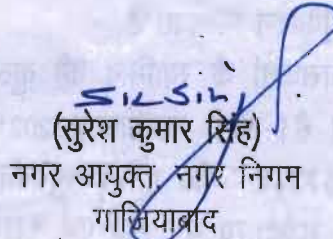 (सुरेश कुमार सिंह)
नगर आयुक्त, नगर निगम
गाजियाबाद